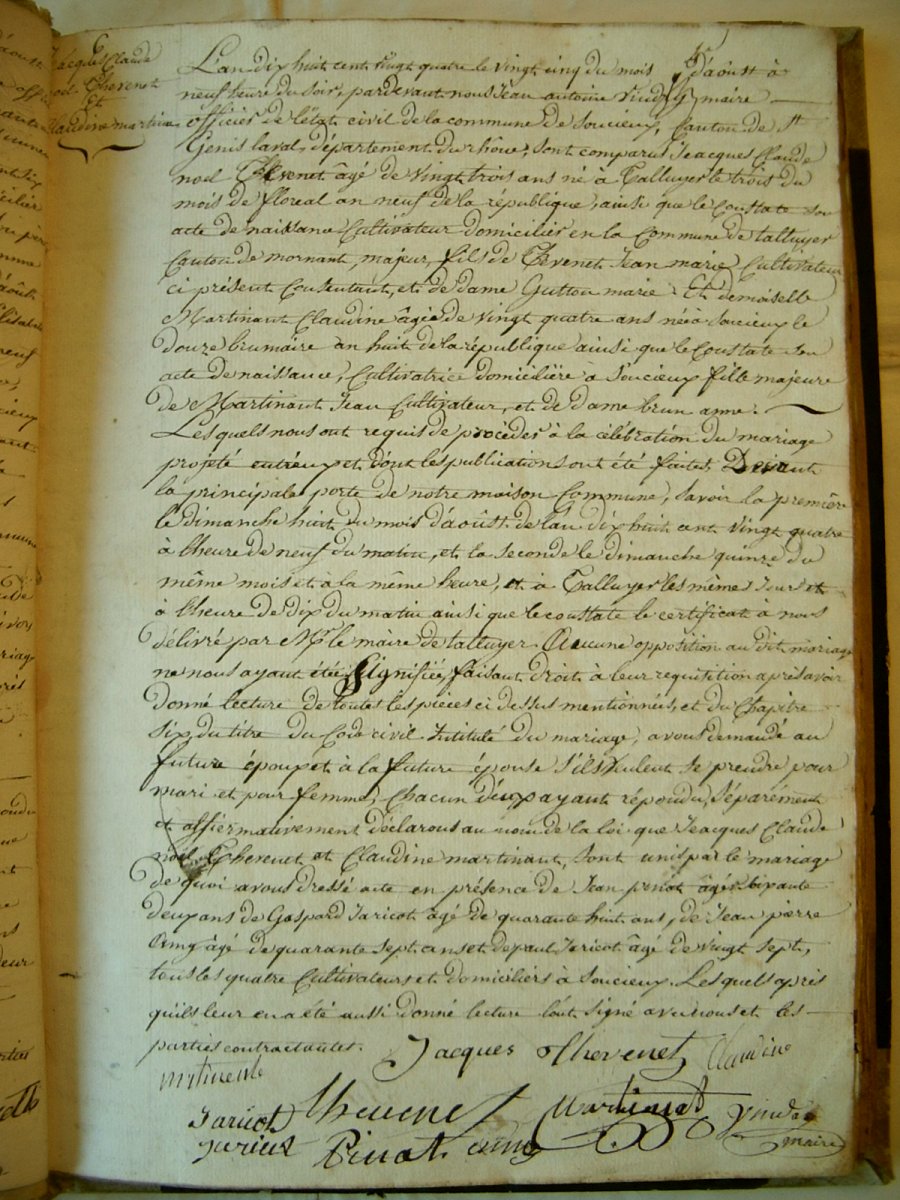 6
Jacques Claude
noel Thevenet
Et
Claudine martinant
L'an dix huit cent vingt quatre le vingt cinq du mois d'aoust à
neuf heure du soir, pardevant nous Jean antoine maire
officier de l'état civil de la commune de Soucieux, Canton de St
Genis laval, département du rhône, sont comparus Jeacques Claude
noel Thevenet âgé de vingt trois ans né à Talluyer le trois du
mois de floreal an neuf de la république, ainsi que le Constate son
acte de naissance Cultivateur domiciliés en la Commune de talluyer
Canton de mornant, majeur, fils de Thevenet Jean marie, Cultivateur
ci présent Consentant, et de dame Gutton marie. Et demoiselle
Martinant Claudine âgée de vingt quatre ans née à Soucieux le
douze brumaire an huit de la république ainsi que le Constate son
acte de naissance, Cultivatrice domiciliére a Soucieux fille majeure
de Martinant Jean Cultivateur, et de dame brun anne.
Lesquels nous ont requis de procèder à la célébration du mariage
projeté entreux et dont les publications ont été faites Devant
la principale porte de notre maison Commune, Savoir la première
le dimanche huit du mois d'août de l'an dix huit cent vingt quatre
à l'heure de neuf du matin, et la seconde le dimanche quinze du
même mois et à la même heure, et à Talluyer les même Jours et
à l'heure de dix du matin ainsi que le constate le certificat à nous
délivré par Mr. le maire de talluyer. Aucune opposition au dit mariage
ne nous ayant étée Signifiée, faisant droit à leur requisition après avoir
donné lecture de toutes les pièces ci dessus mentionnées, et du Chapitre
Six du titre du Code civil Intitulé du mariage, avons demandé au
future époux et à la future épouse s'ils veulent se prendre pour
mari et pour femme, Chacun d'eux ayant répondu, Séparément
et affirmativement déclarons au nom de la loi que Jeacques Claude
noël Thevenet et Claudine martinant, Sont unis par le mariage
de quoi avons dressé acte en présence de Jean pinat âgé
deux ans de Gaspard Jaricot âgé de quarante huit ans, de Jean pierre
âgé de quarante Sept ans et de paul Jaricot âgé de vingt Sept,
tous les quatre Cultivateurs et domiciliés à Soucieux. Lesquels après
qu'ils leur en a été aussi donné lecture l'ont signé avec nous et les
parties contractantes.
Jacques Thevenet Claudine
Jaricot Thevenet Martinant
Pinat maire